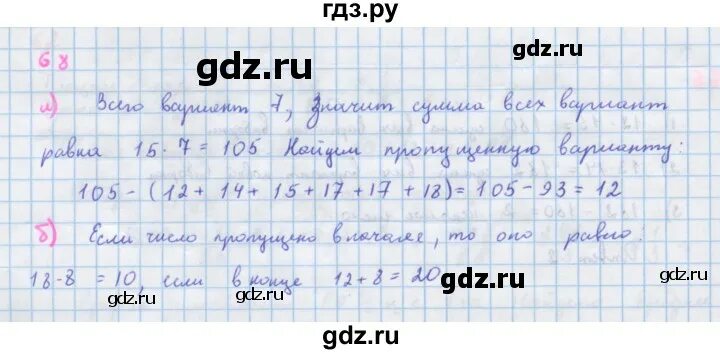 гдз.ру
68 gdz.ru gdz.ru
а) Всего вариант 7, значит сумма всех вариант
равна 15·7=105 Найдем пропущенную варианту:
105-(12+14+15+17+17+18)=105-93=12
б) Если число пропущено вначале, то оно равно:
18-8=10, если в конце 12+8=20
gdz.ru gdz.ru gdz.ru
gdz.ru